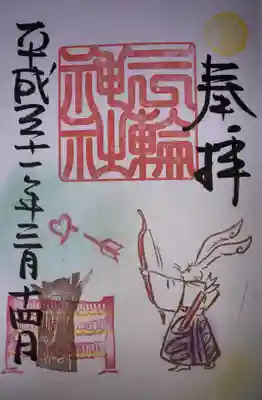 奉拝
三輪神社
平成三十一年三月十四日